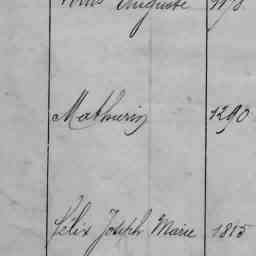 Auguste
Mathurin 1290
Félix Joseph Marie 1815